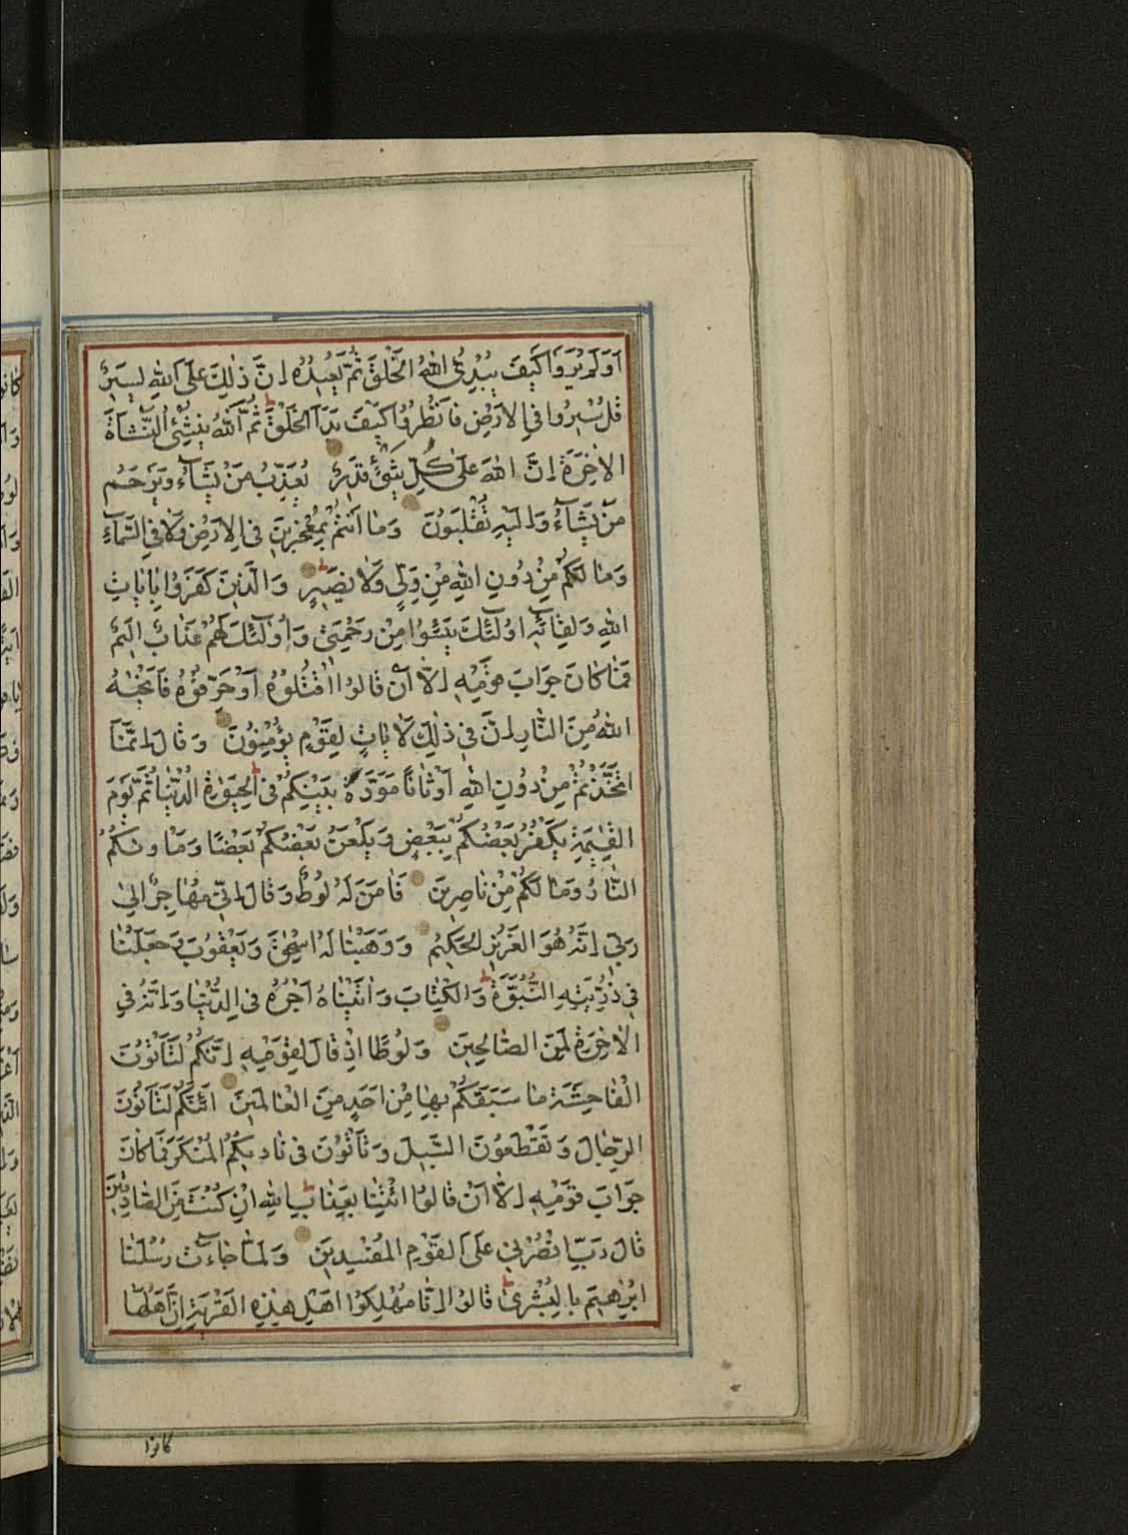 اَوَلَمْ يَرَوْا كَيْفَ يُبْدِئُ اللّٰهُ الْخَلْقَ ثُمَّ يُعِيدُهُ اِنَّ ذٰلِكَ عَلَى اللّٰهِ يَسِيرٌ
قُلْ سِيرُوا فِي الْاَرْضِ فَانْظُرُوا كَيْفَ بَدَاَ الْخَلْقَ ثُمَّ اللّٰهُ يُنْشِئُ النَّشْاَةَ
الْاٰخِرَةَ اِنَّ اللّٰهَ عَلٰى كُلِّ شَيْءٍ قَدِيرٌ يُعَذِّبُ مَنْ يَشَآءُ وَيَرْحَمُ
مَنْ يَشَآءُ وَاِلَيْهِ تُقْلَبُونَ وَمَا اَنْتُمْ بِمُعْجِزِينَ فِي الْاَرْضِ وَلَا فِي السَّمَآءِ
وَمَا لَكُمْ مِنْ دُونِ اللّٰهِ مِنْ وَلِيٍّ وَلَا نَصِيرٍ وَالَّذِينَ كَفَرُوا بِاٰيَاتِ
اللّٰهِ وَلِقَائِهِ اُولٰئِكَ يَئِسُوا مِنْ رَحْمَتِي وَاُولٰئِكَ لَهُمْ عَذَابٌ اَلِيمٌ
فَمَا كَانَ جَوَابَ قَوْمِهِ اِلَّا اَنْ قَالُوا اقْتُلُوهُ اَوْ حَرِّقُوهُ فَاَنْجٰيهُ
اللّٰهُ مِنَ النَّارِ اِنَّ فِي ذٰلِكَ لَاٰيَاتٍ لِقَوْمٍ يُؤْمِنُونَ وَقَالَ اِنَّمَا
اتَّخَذْتُمْ مِنْ دُونِ اللّٰهِ اَوْثَانًا مَوَدَّةَ بَيْنِكُمْ فِي الْحَيٰوةِ الدُّنْيَا ثُمَّ يَوْمَ
الْقِيٰمَةِ يَكْفُرُ بَعْضُكُمْ بِبَعْضٍ وَيَلْعَنُ بَعْضُكُمْ بَعْضًا وَمَاْوٰيكُمُ
النَّارُ وَمَا لَكُمْ مِنْ نَاصِرِينَ فَاٰمَنَ لَهُ لُوطٌ وَقَالَ اِنِّي مُهَاجِرٌ اِلٰى
رَبِّي اِنَّهُ هُوَ الْعَزِيزُ الْحَكِيمُ وَوَهَبْنَا لَهُ اِسْحٰقَ وَيَعْقُوبَ وَجَعَلْنَا
فِي ذُرِّيَّتِهِ النُّبُوَّةَ وَالْكِتَابَ وَاٰتَيْنَاهُ اَجْرَهُ فِي الدُّنْيَا وَاِنَّهُ فِي
الْاٰخِرَةِ لَمِنَ الصَّالِحِينَ وَلُوطًا اِذْ قَالَ لِقَوْمِهِ اِنَّكُمْ لَتَاْتُونَ
الْفَاحِشَةَ مَا سَبَقَكُمْ بِهَا مِنْ اَحَدٍ مِنَ الْعَالَمِينَ اَئِنَّكُمْ لَتَاْتُونَ
الرِّجَالَ وَتَقْطَعُونَ السَّبِيلَ وَتَاْتُونَ فِي نَادِيكُمُ الْمُنْكَرَ فَمَا كَانَ
جَوَابَ قَوْمِهِ اِلَّا اَنْ قَالُوا ائْتِنَا بِعَذَابِ اللّٰهِ اِنْ كُنْتَ مِنَ الصَّادِقِينَ
قَالَ رَبِّ انْصُرْنِي عَلَى الْقَوْمِ الْمُفْسِدِينَ وَلَمَّا جَاءَتْ رُسُلُنَا
اِبْرٰهِيمَ بِالْبُشْرٰى قَالُوا اِنَّا مُهْلِكُوا اَهْلِ هٰذِهِ الْقَرْيَةِ اِنَّ اَهْلَهَا
كانوا